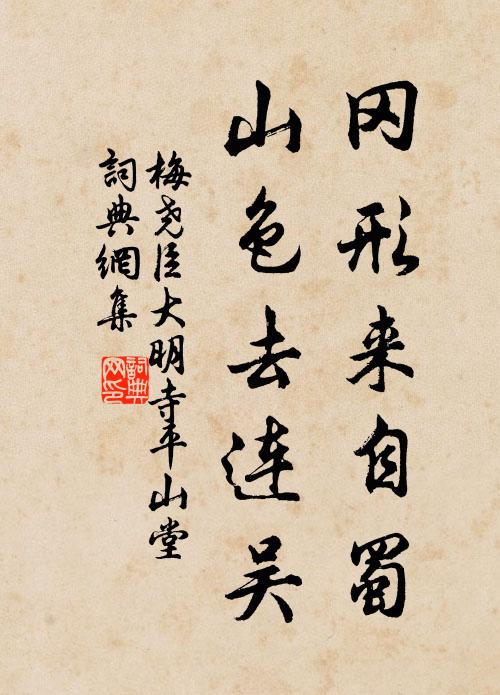 冈形来自蜀
山色去连吴
梅尧臣大明寺平山堂
詞典網集
詞典网印